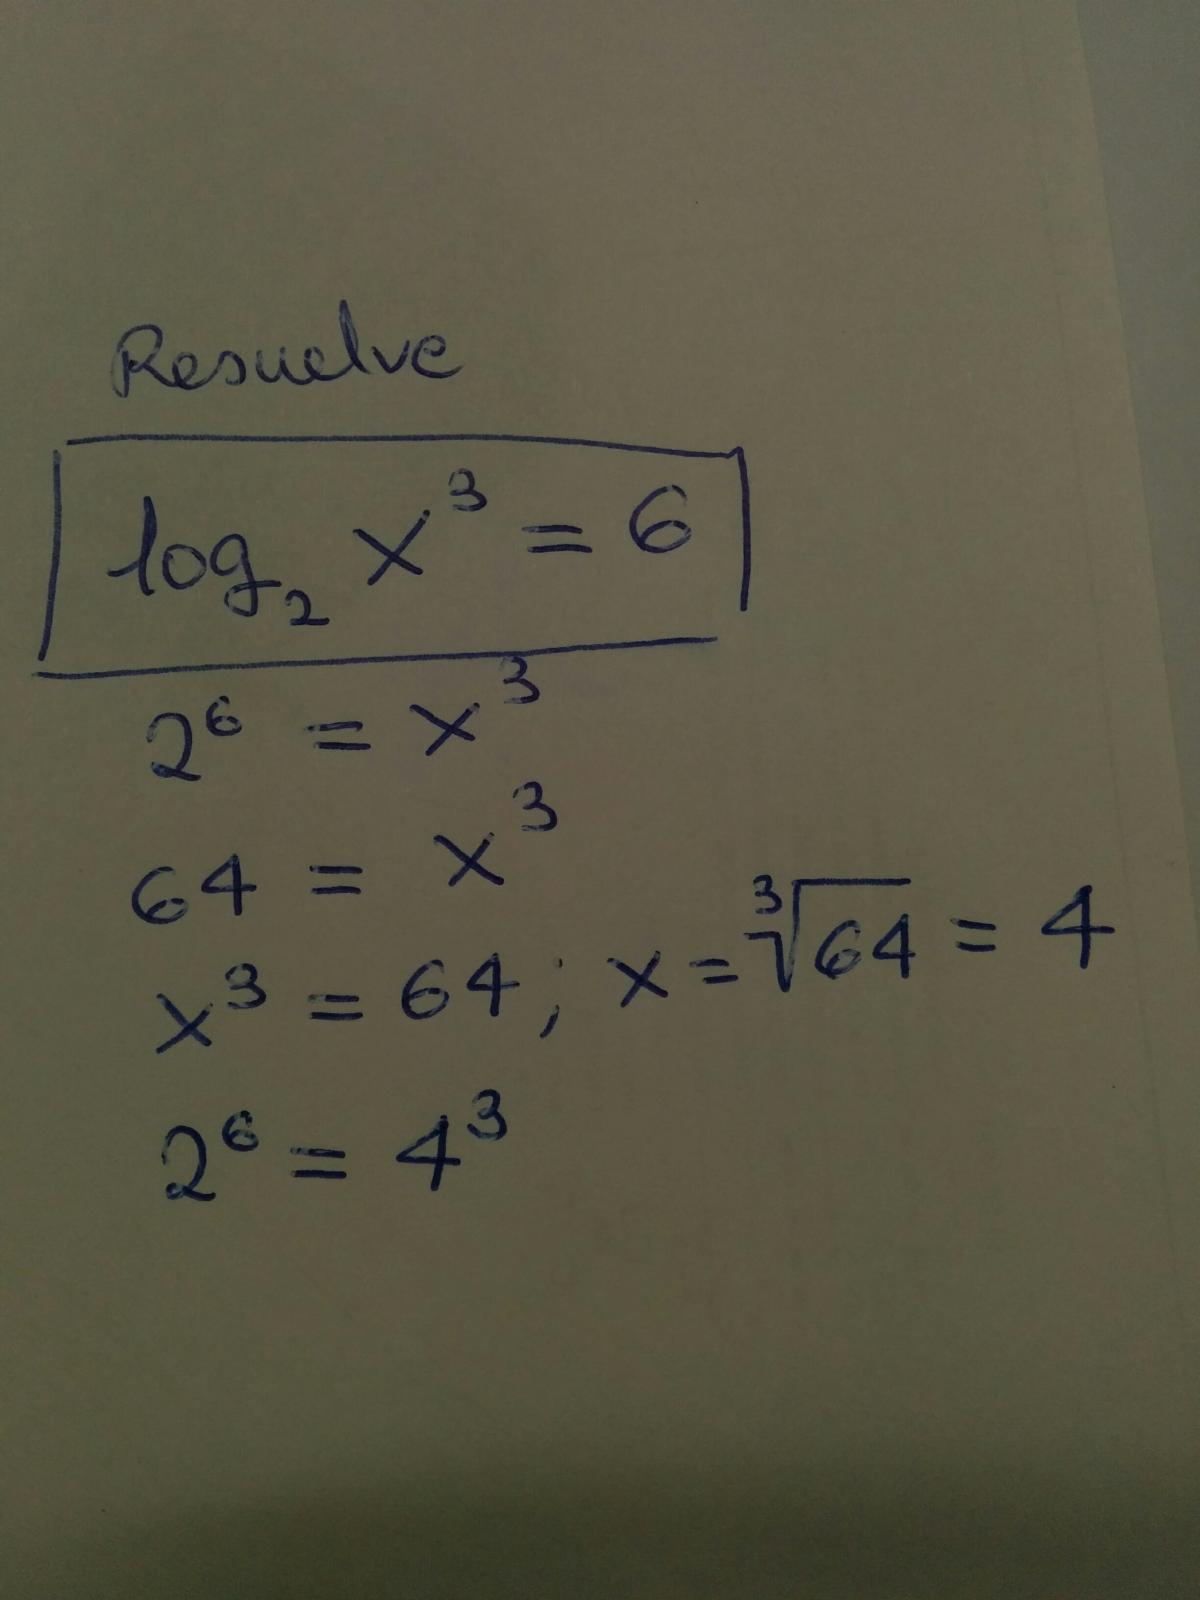 Resuelve
log₂ x³ = 6
2⁶ = x³
64 = x³
x³ = 64 ; x = ³√64 = 4
2⁶ = 4³